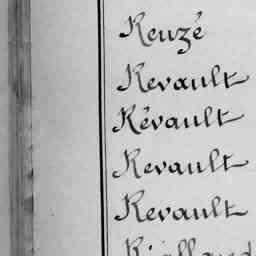 Reuzé
Revault
Révault
Revault
Revault